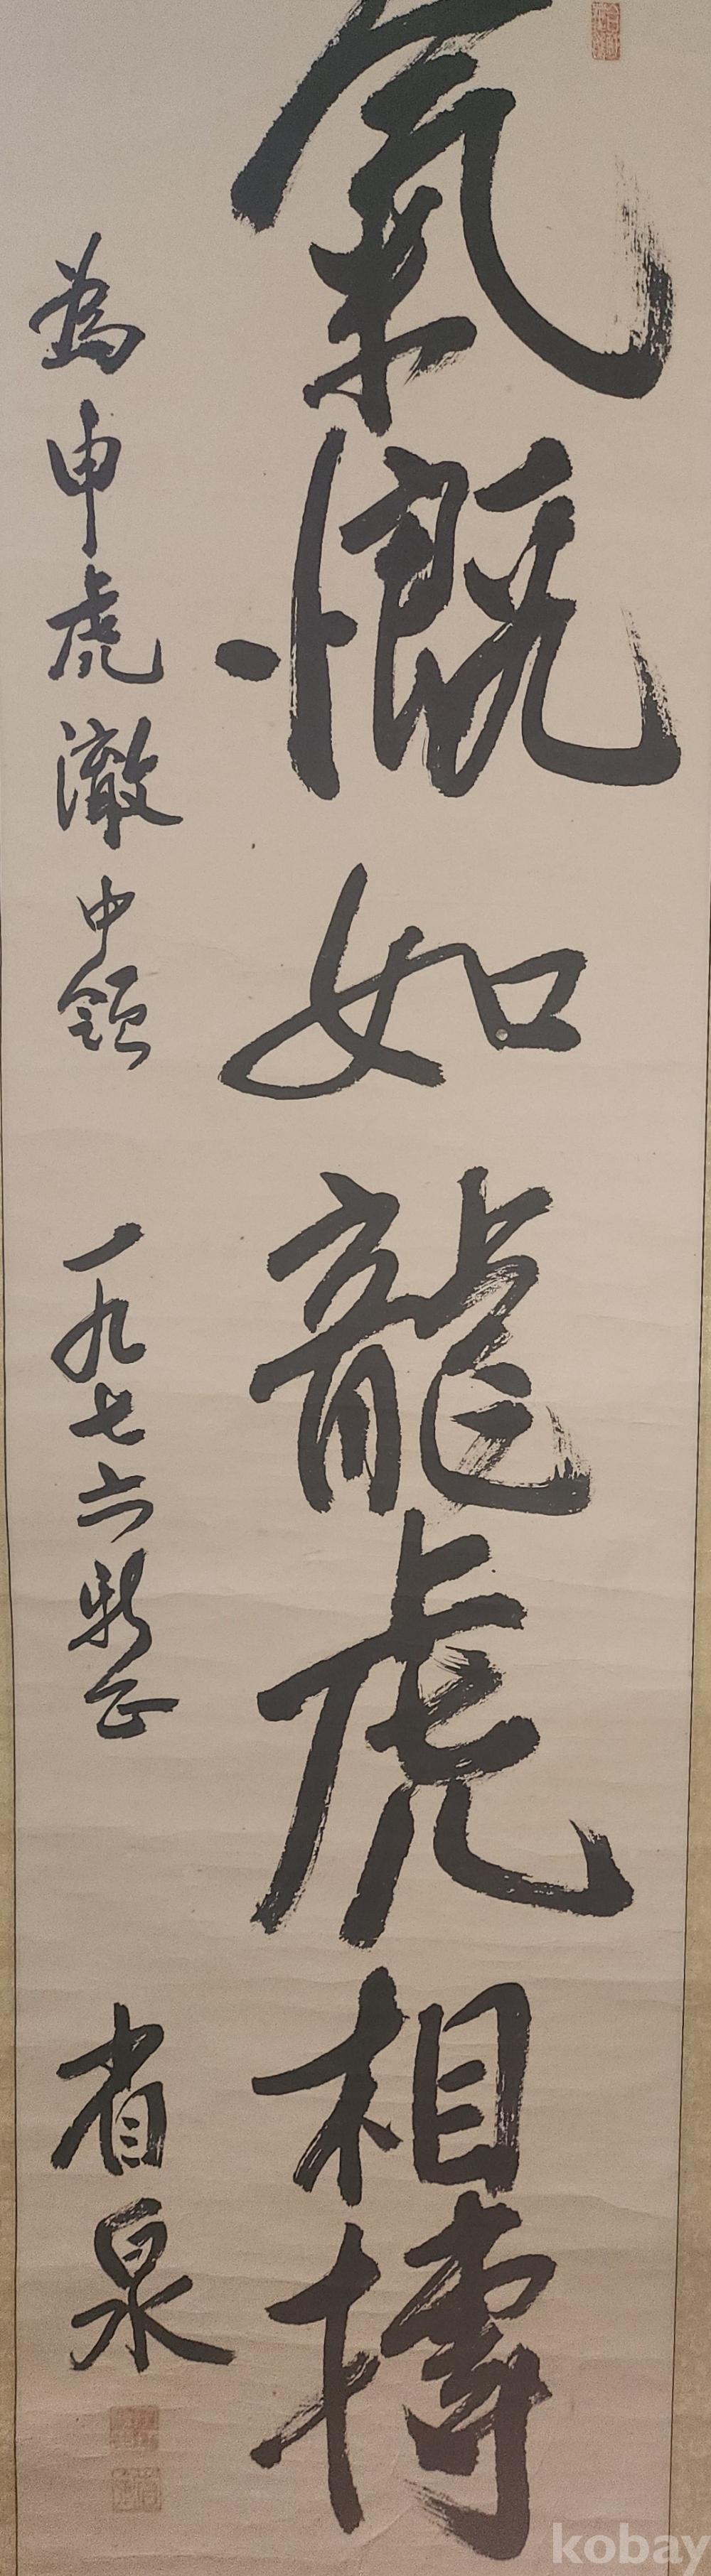 氣慨如龍虎相搏
為申虎澈中領 一九七六新正 省泉
kobay